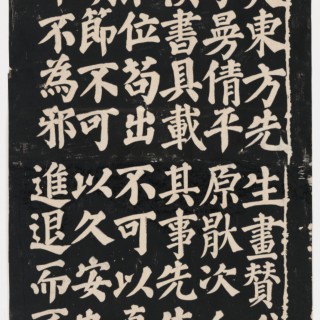 東方先生畫贊
曼倩平原猒次
書具載其事先生
位苟出不可以直
節不可以久安也
不為邪進退而不